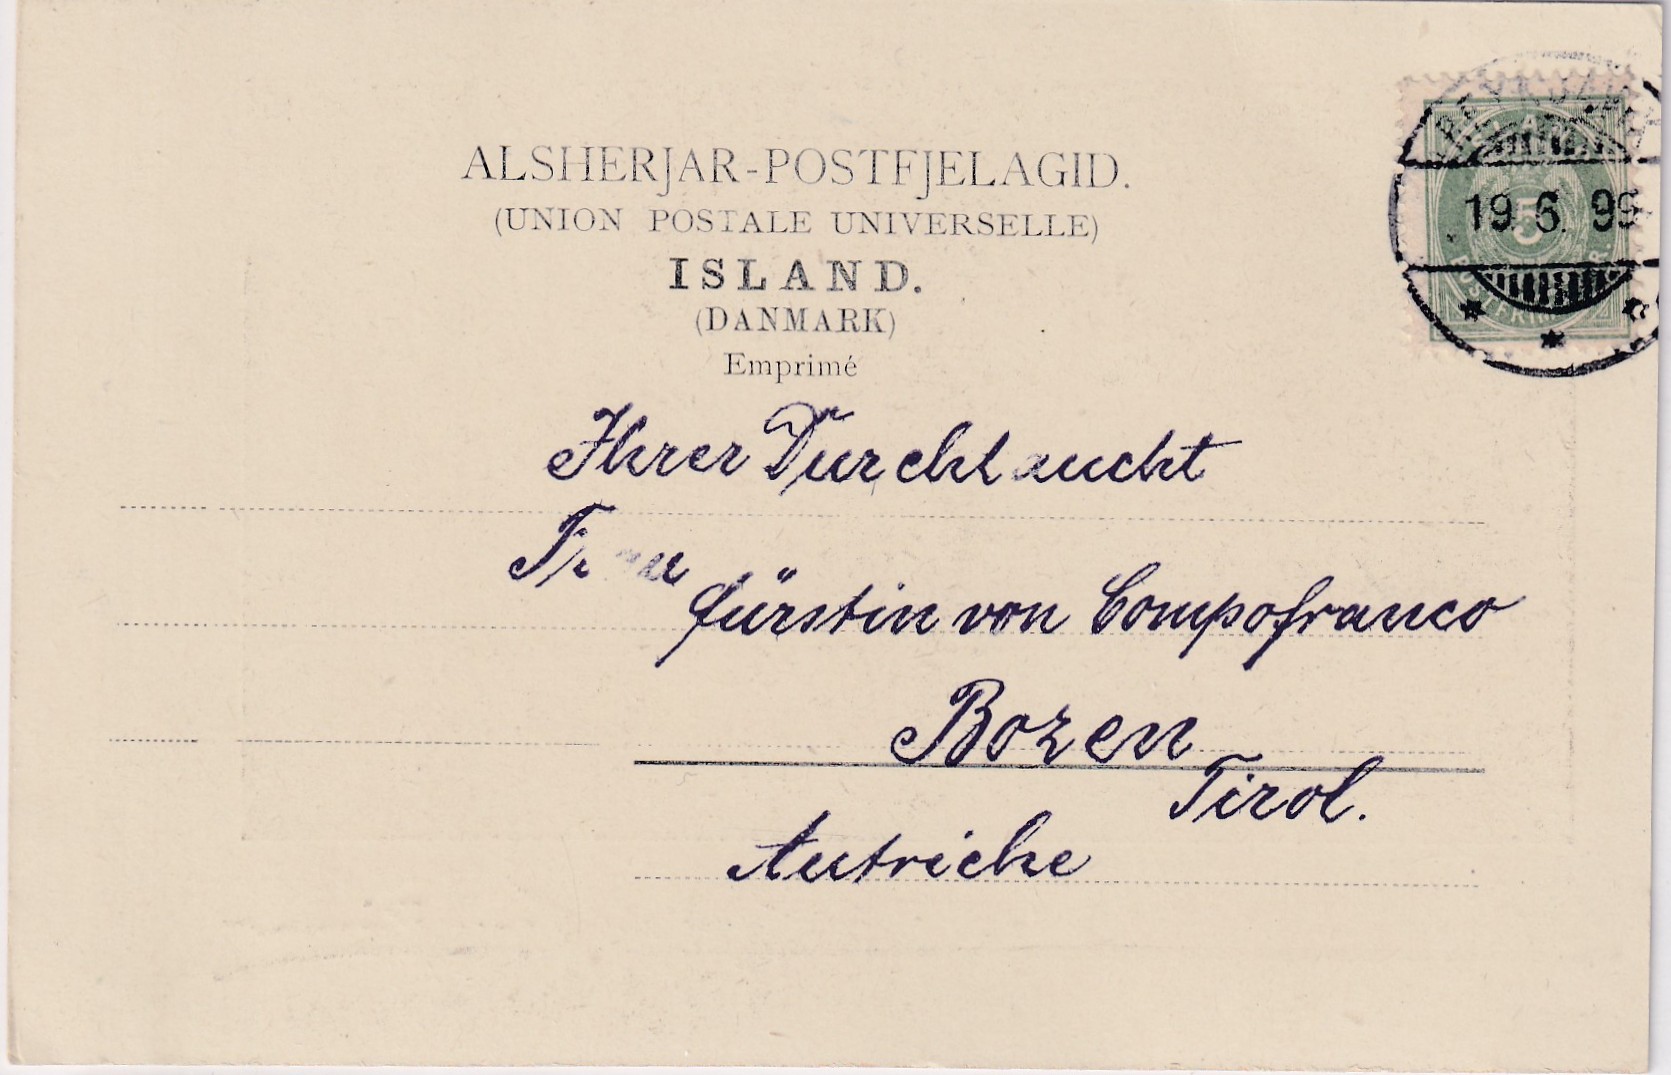 ALSHERJAR-POSTFJELAGID.
(UNION POSTALE UNIVERSELLE)
ISLAND.
(DANMARK)
Emprimé
REYKJAVIK
19. 6. 99
5
POSTFRIM
Ihrer Durchlaucht
Frau
fürstin von Compofranco
Bozen
Tirol.
Autriche